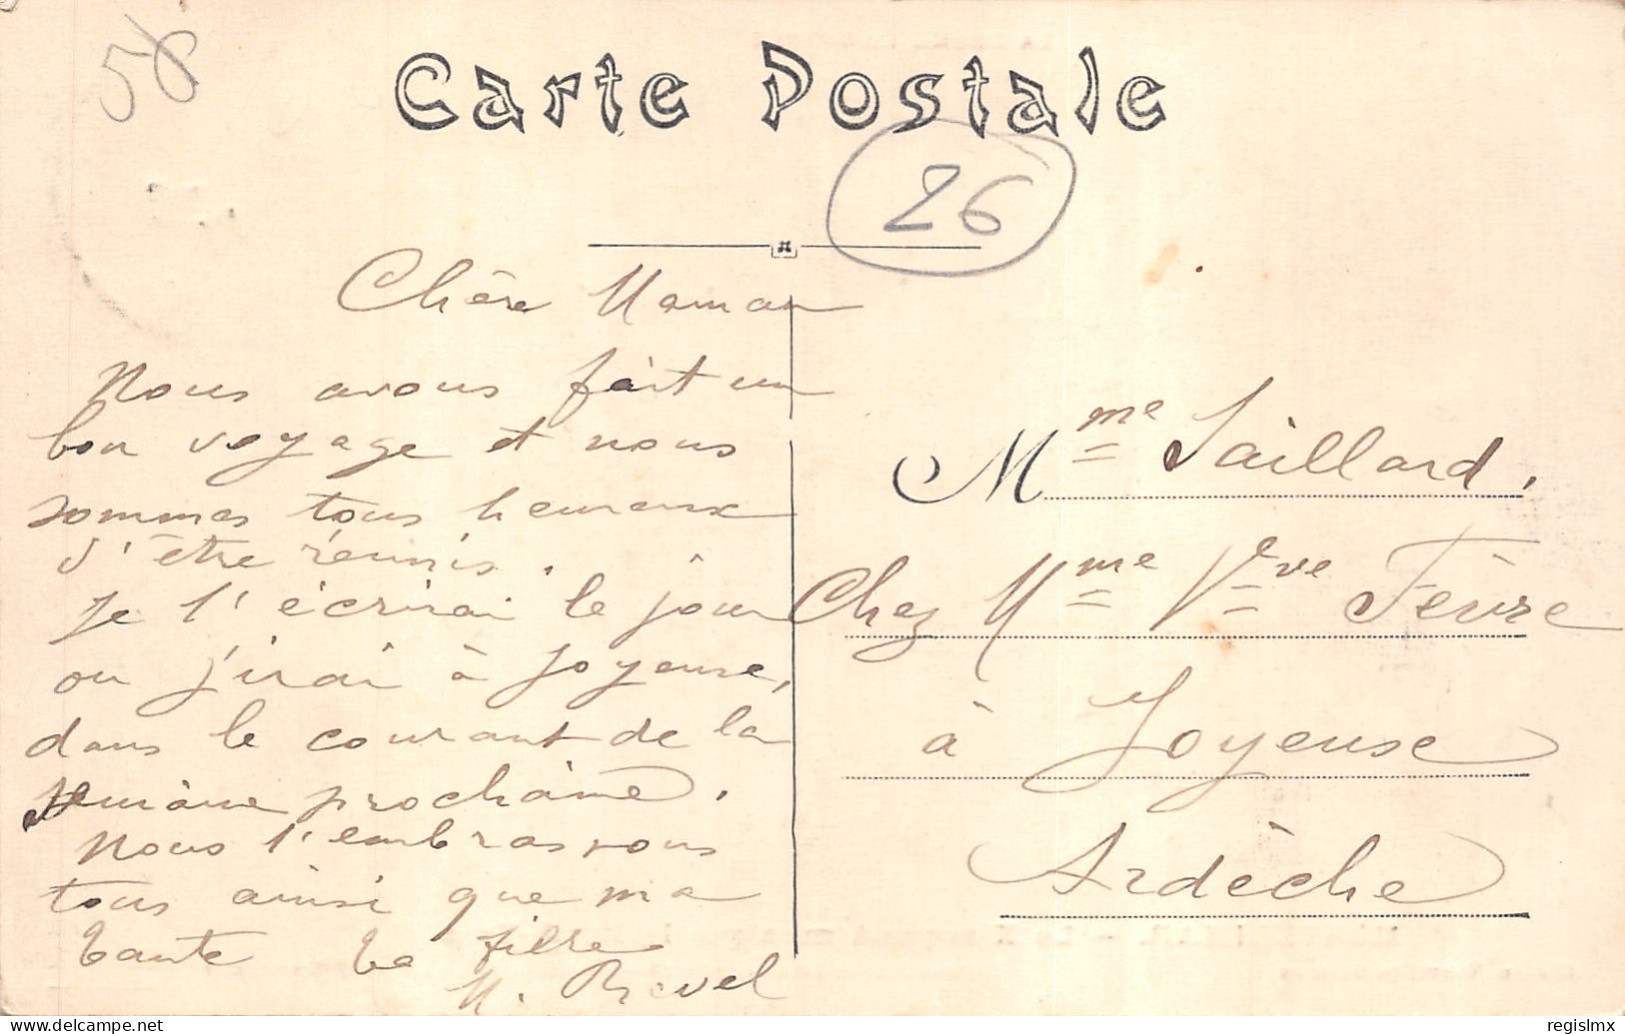 58
Carte Postale
26
Chère Maman
Nous avons fait un
bon voyage et nous
sommes tous heureux
d'être réunis.
Je t'écrirai le jour
ou j'irai à Joyeuse,
dans le courant de la
semaine prochaine.
Nous t'embrassons
tous ainsi que ma
tante Ta fille
M. Revel
Mme Saillard,
Chez Mme Vve Fèvre
à Joyeuse
Ardèche
regislmx